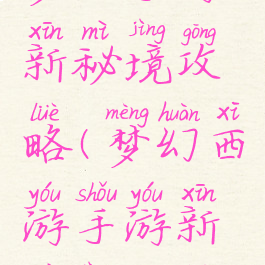 xīn mì jìng gōng
新秘境攻
lüè mèng huàn xī
略(梦幻西
yóu shǒu yóu xīn
游手游新